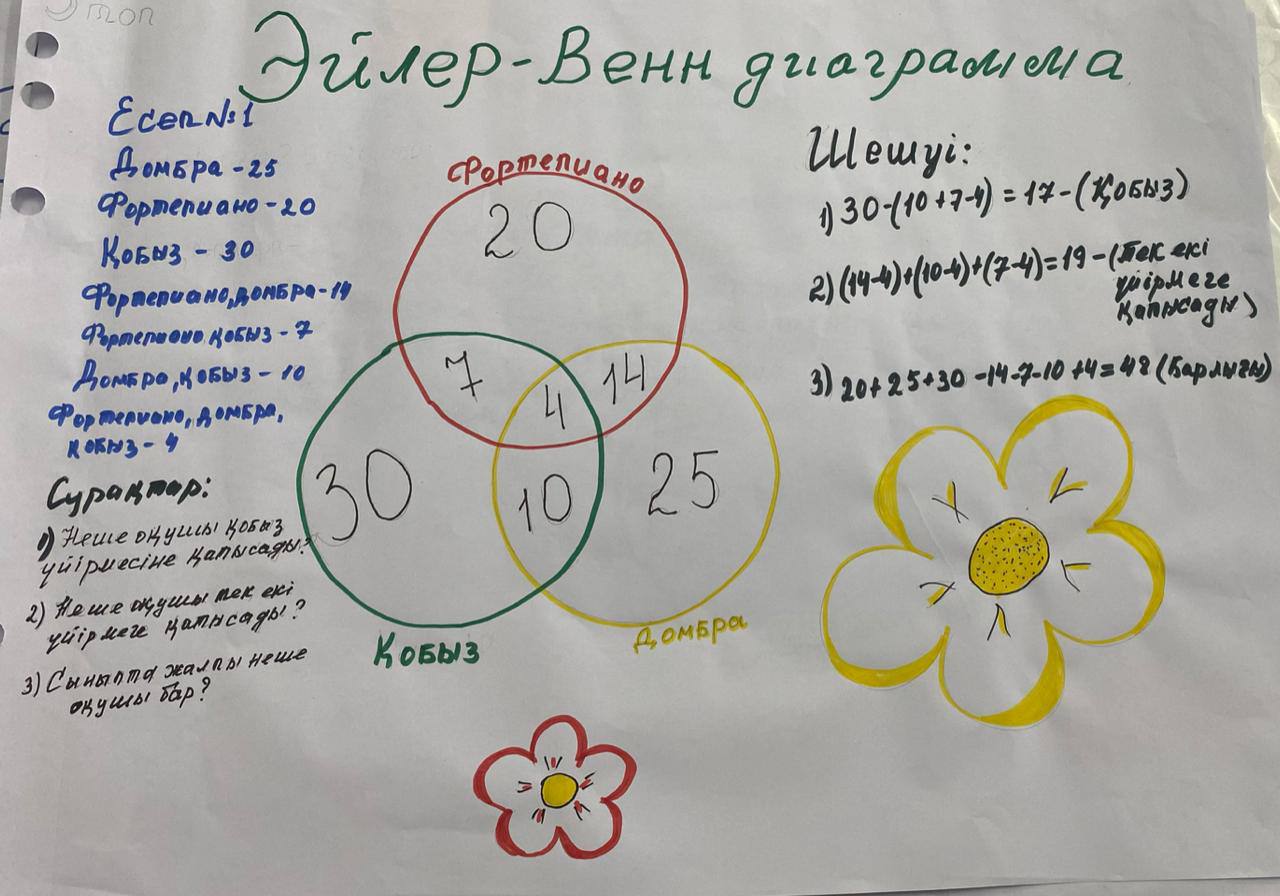 Этоп
Эйлер-Венн диаграмма
Есеп №1
Домбра - 25
Фортепиано - 20
Қобыз - 30
Фортепиано, домбра - 14
Фортепиано, қобыз - 7
Домбра, қобыз - 10
Фортепиано, домбра,
қобыз - 4
Сұрақтар:
1) Неше оқушы қобыз
үйірмесіне қатысады?
2) Неше оқушы тек екі
үйірмеге қатысады?
3) Сыныпта жалпы неше
оқушы бар?
Фортепиано
20
7
4
14
30
10
25
Қобыз
Домбра
Шешуі:
1) 30-(10+7-4) = 17 - (Қобыз)
2) (14-4)+(10-4)+(7-4)=19 - (тек екі
үйірмеге
қатысады)
3) 20+25+30-14-7-10+4=48 (Барлығы)